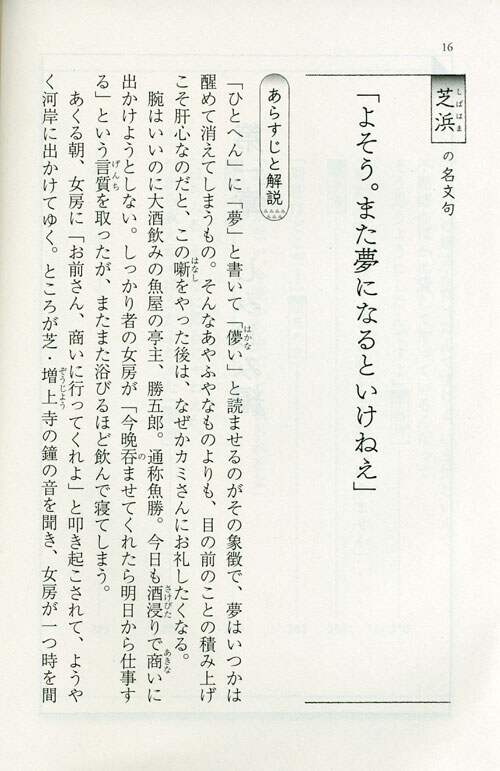 16
芝浜の名文句
「よそう。また夢になるといけねえ」
あらすじと解説
「ひとへん」に「夢」と書いて「儚い」と読ませるのがその象徴で、夢はいつかは
醒めて消えてしまうもの。そんなあやふやなものよりも、目の前のことの積み上げ
こそ肝心なのだと、この噺をやった後は、なぜかカミさんにお礼したくなる。
腕はいいのに大酒飲みの魚屋の亭主、勝五郎。通称魚勝。今日も酒浸りで商いに
出かけようとしない。しっかり者の女房が「今晩呑ませてくれたら明日から仕事す
る」という言質を取ったが、またまた浴びるほど飲んで寝てしまう。
あくる朝、女房に「お前さん、商いに行ってくれよ」と叩き起こされて、ようや
く河岸に出かけてゆく。ところが芝・増上寺の鐘の音を聞き、女房が一つ時を間